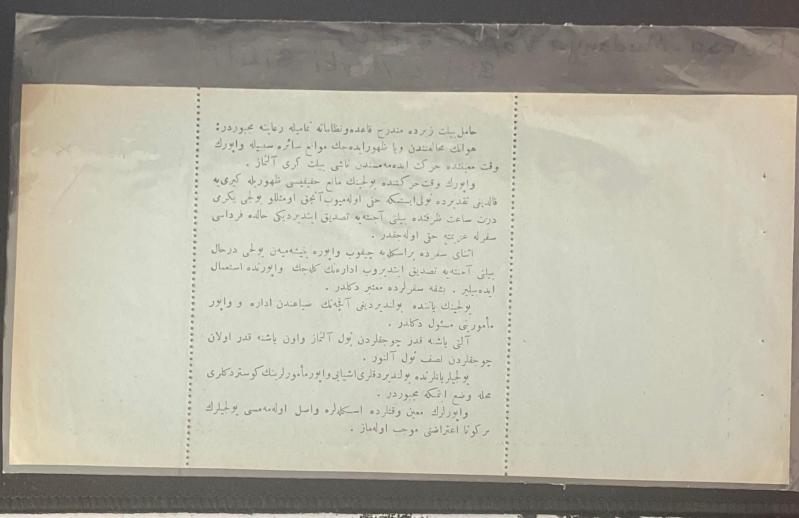 Bursa Mudanya Vapur
حامل بیلت زیرده مندرج قاعده و نظاماته تمامیله رعایته مجبوردر :
هوانك مخالفتندن ویا ظهور ایده‌جك موانع سائره سببیله واپورك
وقت معیننده حركت ایده‌مه‌مسندن ناشی بیلت كری آلنماز .
واپورك وقت حركتنده یولجینك مانع حقیقیسی ظهوریله كیری‌یه
قالدیغی تقدیرده نولی ایسته‌مكه حقی اوله‌میوب آنجق او مثللو یولجی یكرمی
درت ساعت ظرفنده بیلتی آجنته‌یه تصدیق ایتدیردیكی حالده فرداسی
سفرله عزیمته حقی اوله‌جقدر .
اثنای سفرده بر اسكله‌یه چیقوب واپوره یتیشه‌میه‌ن یولجی درحال
بیلتی آجنته‌یه تصدیق ایتدیروب اداره‌نك كله‌جك واپورنده استعمال
ایده‌بیلیر . بشقه سفرلرده معتبر دكلدر .
یولجینك یاننده بولندیردیغی آقچه‌نك ضیاعندن اداره و واپور
مأمورینی مسئول دكلدر .
آلتی یاشنه قدر چوجقلردن نول آلنماز و اون یاشنه قدر اولان
چوجقلردن نصف نول آلنور .
یولجیلر یانلرنده بولندیردقلری اشیایی واپور مأمورلرینك كوستردكلری
محله وضع ایتمكه مجبوردر .
واپورلرك معین وقتلرده اسكله‌لره واصل اوله‌مه‌مسی یولجیلرك
بر كونا اعتراضنی موجب اوله‌ماز .